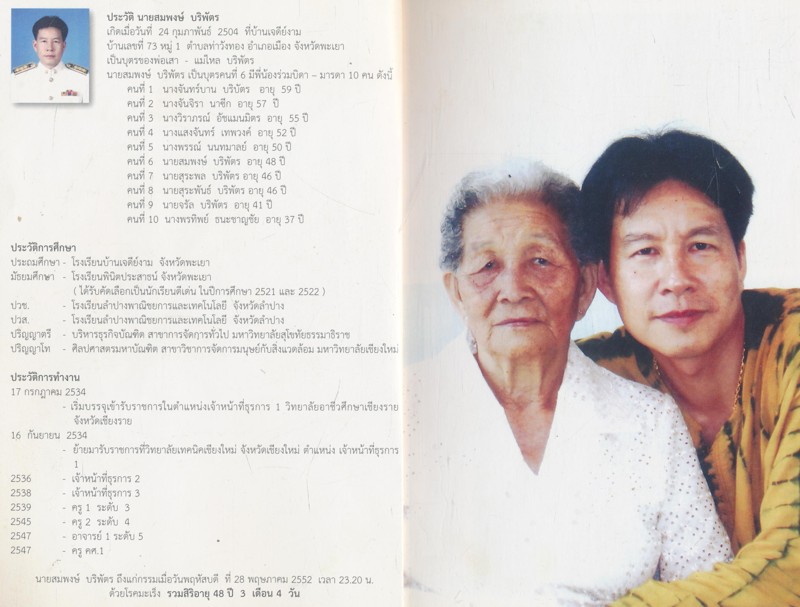 ประวัติ นายสมพงษ์ บริพัตร
เกิดเมื่อวันที่ 24 กุมภาพันธ์ 2504 ที่บ้านเจดีย์งาม
บ้านเลขที่ 73 หมู่ 1 ตำบลท่าวังทอง อำเภอเมือง จังหวัดพะเยา
เป็นบุตรของพ่อเสา - แม่ไหล บริพัตร
นายสมพงษ์ บริพัตร เป็นบุตรคนที่ 6 มีพี่น้องร่วมบิดา – มารดา 10 คน ดังนี้
คนที่ 1 นางจันทร์บาน บริบัตร อายุ 59 ปี
คนที่ 2 นางจันจิรา นาซีก อายุ 57 ปี
คนที่ 3 นางวิราภรณ์ อัชแมนมิตร อายุ 55 ปี
คนที่ 4 นางแสงจันทร์ เทพวงค์ อายุ 52 ปี
คนที่ 5 นางพรรณ์ นนทมาลย์ อายุ 50 ปี
คนที่ 6 นายสมพงษ์ บริพัตร อายุ 48 ปี
คนที่ 7 นายสุระพล บริพัตร อายุ 46 ปี
คนที่ 8 นายสุระพันธ์ บริพัตร อายุ 46 ปี
คนที่ 9 นายจรัล บริพัตร อายุ 41 ปี
คนที่ 10 นางพรทิพย์ ธนะชาญชัย อายุ 37 ปี
ประวัติการศึกษา
ประถมศึกษา - โรงเรียนบ้านเจดีย์งาม จังหวัดพะเยา
มัธยมศึกษา - โรงเรียนพินิตประสาธน์ จังหวัดพะเยา
( ได้รับคัดเลือกเป็นนักเรียนดีเด่น ในปีการศึกษา 2521 และ 2522 )
ปวช. - โรงเรียนลำปางพาณิชยการและเทคโนโลยี จังหวัดลำปาง
ปวส. - โรงเรียนลำปางพาณิชยการและเทคโนโลยี จังหวัดลำปาง
ปริญญาตรี - บริหารธุรกิจบัณฑิต สาขาการจัดการทั่วไป มหาวิทยาลัยสุโขทัยธรรมาธิราช
ปริญญาโท - ศิลปศาสตรมหาบัณฑิต สาขาวิชาการจัดการมนุษย์กับสิ่งแวดล้อม มหาวิทยาลัยเชียงใหม่
ประวัติการทำงาน
17 กรกฎาคม 2534
- เริ่มบรรจุเข้ารับราชการในตำแหน่งเจ้าหน้าที่ธุรการ 1 วิทยาลัยอาชีวศึกษาเชียงราย
จังหวัดเชียงราย
16 กันยายน 2534
- ย้ายมารับราชการที่วิทยาลัยเทคนิคเชียงใหม่ จังหวัดเชียงใหม่ ตำแหน่ง เจ้าหน้าที่ธุรการ
1
2536 - เจ้าหน้าที่ธุรการ 2
2538 - เจ้าหน้าที่ธุรการ 3
2539 - ครู 1 ระดับ 3
2545 - ครู 2 ระดับ 4
2547 - อาจารย์ 1 ระดับ 5
2547 - ครู คศ.1
นายสมพงษ์ บริพัตร ถึงแก่กรรมเมื่อวันพฤหัสบดี ที่ 28 พฤษภาคม 2552 เวลา 23.20 น.
ด้วยโรคมะเร็ง รวมสิริอายุ 48 ปี 3 เดือน 4 วัน